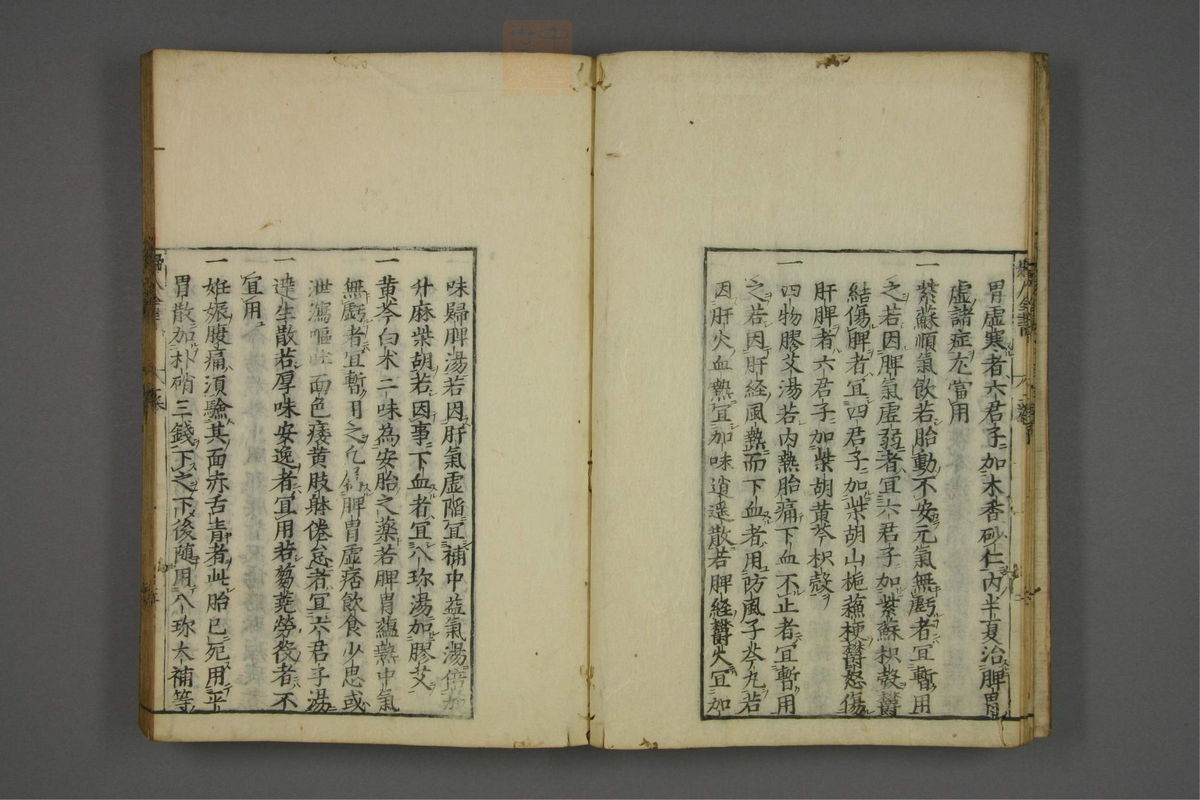 胃虛寒者六君子加木香砂仁内半夏治脾胃
虛諸症尤當用
一紫蘇順氣飲若胎動不安元氣無虧者宜暫用
之若因脾氣虛弱者宜六君子加紫蘇枳殼欝
結傷脾者宜四君子加柴胡山梔蘓梗欝怒傷
肝脾者六君子加柴胡黄芩枳殼
一四物膠艾湯若内熱胎痛下血不止者宜暫用
之若因肝経風熱而下血者用防風子芩丸若
因肝火血熱宜加味逍遥散若脾経欝火宜加
味歸脾湯若因肝氣虛陷宜補中益氣湯倍加
升麻柴胡若因事下血者宜八珎湯加膠艾
一黄芩白朮二味為安胎之薬若脾胃蘊熱中氣
無虧者宜暫用之凢脾胃虛痞飲食少思或
泄瀉嘔吐面色痿黄肢躰倦怠者宜六君子湯
一達生散若厚味安逸者宜用若蒭蕘勞役者不
宜用
一妊娠腹痛須驗其面赤舌青者此胎已死用平
胃散加朴硝三錢下之下後随用八珎大補等